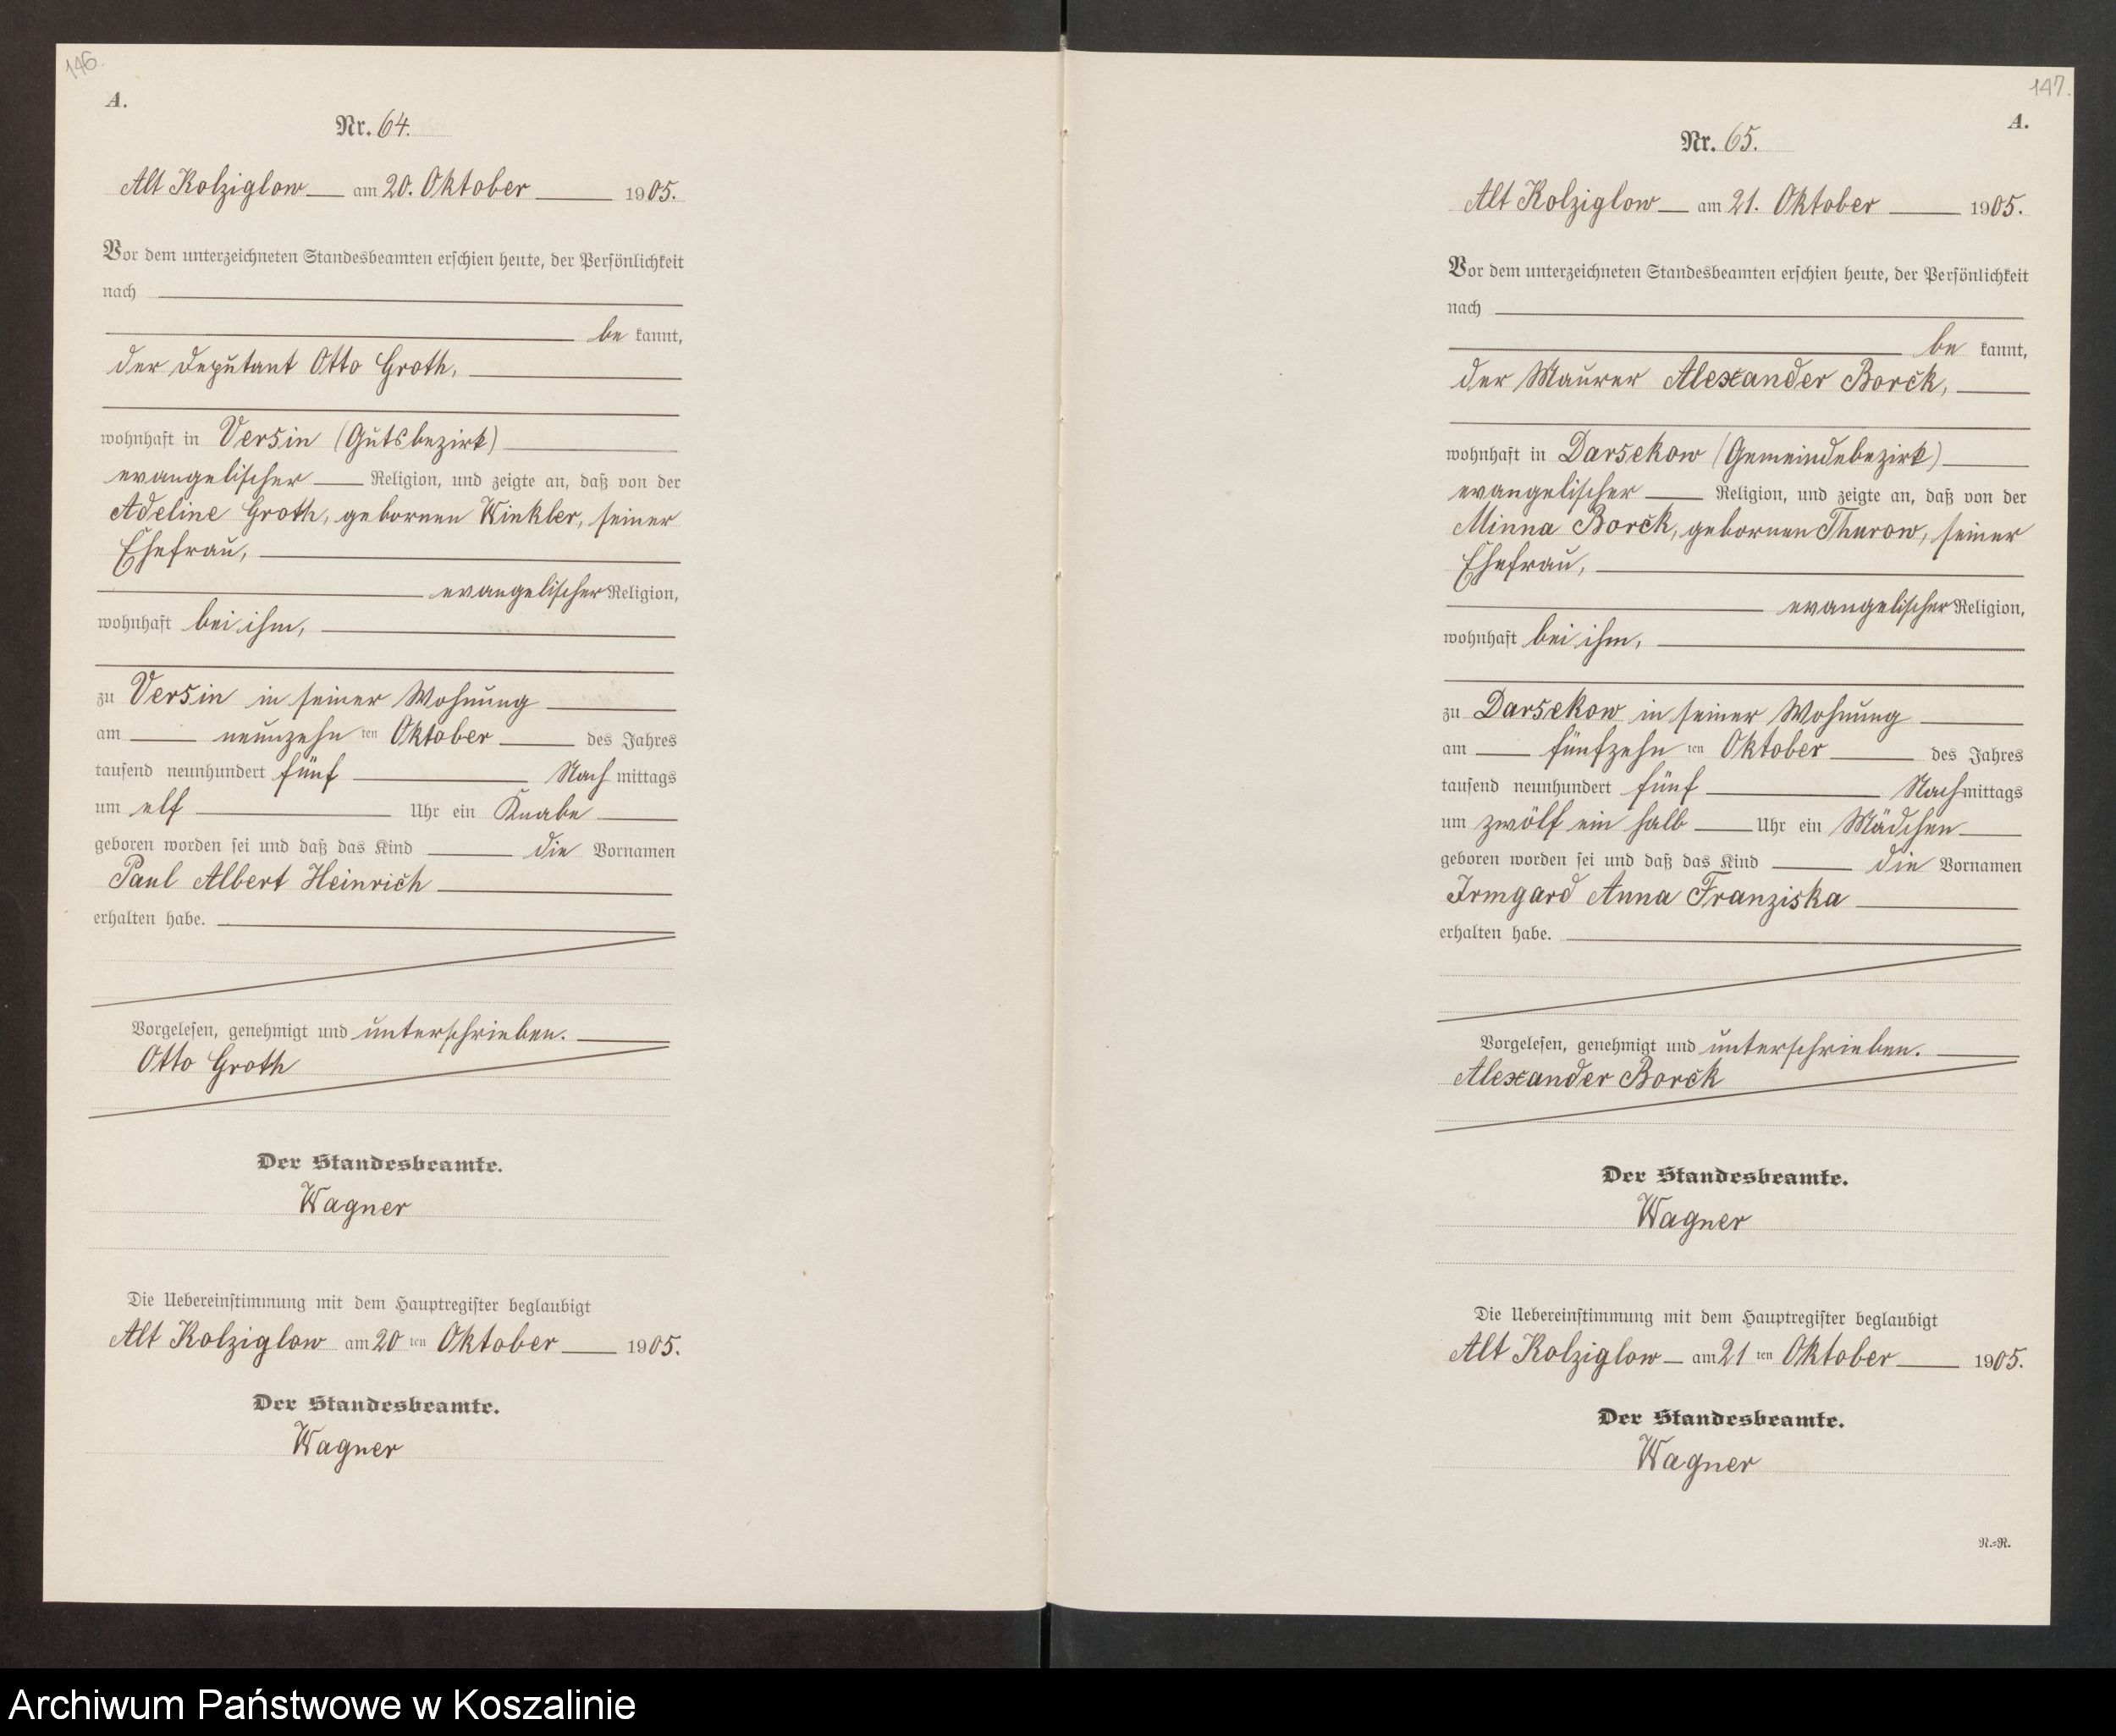 146.
A.
Nr. 64.
Alt Kolziglow am 20. Oktober 1905.
Vor dem unterzeichneten Standesbeamten erschien heute, der Persönlichkeit
nach
be kannt,
der Deputant Otto Groth,
wohnhaft in Versin (Gutsbezirk)
evangelischer Religion, und zeigte an, daß von der
Adeline Groth, gebornen Winkler, seiner
Ehefrau,
evangelischer Religion,
wohnhaft bei ihm,
zu Versin in seiner Wohnung
am neunzehn ten Oktober des Jahres
tausend neunhundert fünf Nach mittags
um elf Uhr ein Knabe
geboren worden sei und daß das Kind die Vornamen
Paul Albert Heinrich
erhalten habe.
Vorgelesen, genehmigt und unterschrieben.
Otto Groth
Der Standesbeamte.
Wagner
Die Uebereinstimmung mit dem Hauptregister beglaubigt
Alt Kolziglow am 20 ten Oktober 1905.
Der Standesbeamte.
Wagner
147.
A.
Nr. 65.
Alt Kolziglow am 21. Oktober 1905.
Vor dem unterzeichneten Standesbeamten erschien heute, der Persönlichkeit
nach
be kannt,
der Maurer Alexander Borck,
wohnhaft in Darsekow (Gemeindebezirk)
evangelischer Religion, und zeigte an, daß von der
Minna Borck, gebornen Thurow, seiner
Ehefrau,
evangelischer Religion,
wohnhaft bei ihm,
zu Darsekow in seiner Wohnung
am fünfzehn ten Oktober des Jahres
tausend neunhundert fünf Nachmittags
um zwölf ein halb Uhr ein Mädchen
geboren worden sei und daß das Kind die Vornamen
Irmgard Anna Franziska
erhalten habe.
Vorgelesen, genehmigt und unterschrieben.
Alexander Borck
Der Standesbeamte.
Wagner
Die Uebereinstimmung mit dem Hauptregister beglaubigt
Alt Kolziglow am 21 ten Oktober 1905.
Der Standesbeamte.
Wagner
N.=R.
Archiwum Państwowe w Koszalinie